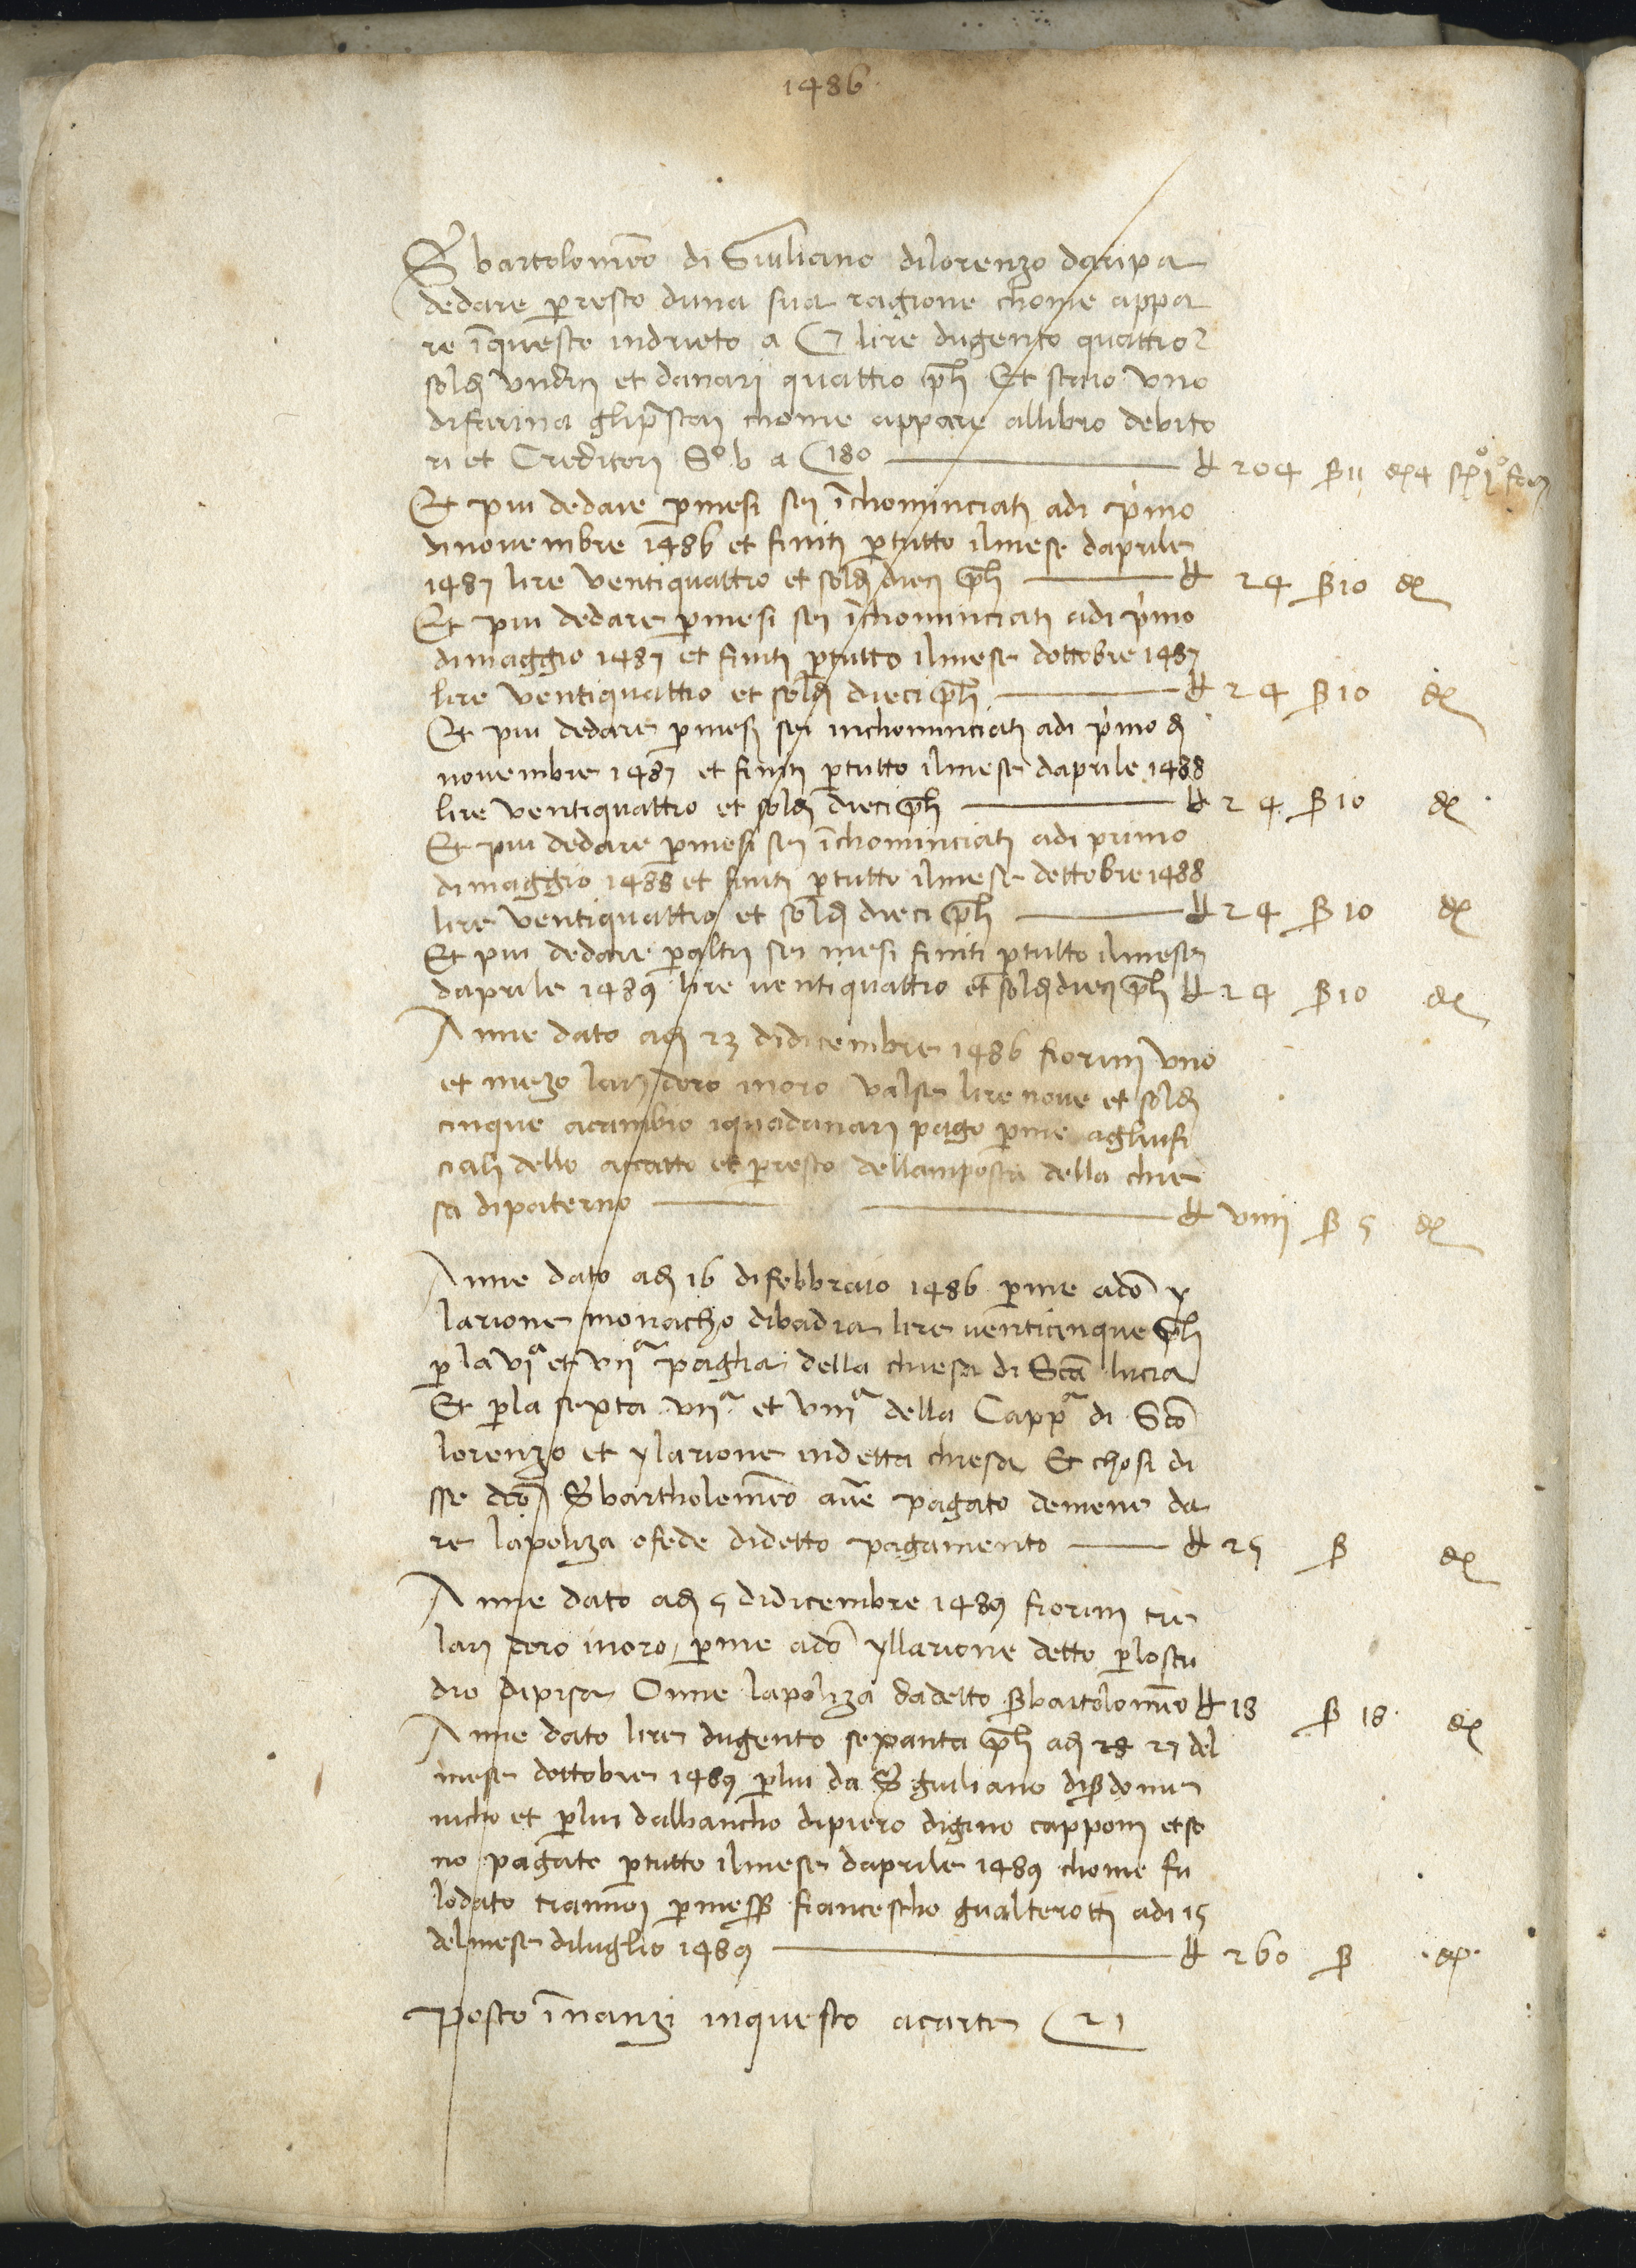 1486
S bartolomeo di Giuliano dilorenzo daripa
dedare p resto duna sua ragione chome appa
re inquesto indrieto a C 7 lire dugento quattro
soldi undici et danari quattro ph Et staio uno
di farina gliprestai chome appare allibro debito
ri et Creditori S° b a C 180 ₶ 204 ß 11 d 4
Et piu dedare p mesi sei inchominciati adi primo
dinovembre 1486 et finiti p tutto ilmese daprile
1487 lire ventiquattro et soldi dieci ph ₶ 24 ß 10 d
Et piu dedare p mesi sei inchominciati adi primo
dimaggio 1487 et finiti p tutto ilmese dottobre 1487
lire ventiquattro et soldi dieci ph ₶ 24 ß 10 d
Et piu dedare p mesi sei inchominciati adi primo di
novembre 1487 et finiti p tutto ilmese daprile 1488
lire ventiquattro et soldi dieci ph ₶ 24 ß 10 d
Et piu dedare p mesi sei inchominciati adi primo
dimaggio 1488 et finiti p tutto ilmese dottobre 1488
lire ventiquattro et soldi dieci ph ₶ 24 ß 10 d
Et piu dedare p altri sei mesi finiti p tutto ilmese
daprile 1489 lire ventiquattro et soldi dieci ph ₶ 24 ß 10 d
Anne dato adi 23 didicembre 1486 fiorini uno
et mezo lari doro inoro valse lire nove et soldi
cinque acambio iqua danari pago p me agliufi
ciali dello accatto et p resto dellamposta della chie
sa dipaterno ₶ viiii ß 5 d
Anne dato adi 16 difebbraio 1486 p me adon y
larione monacho dibadia lire venticinque ph
p la via et viia paglia della chiesa di Sca lucia
Et p la sexta viia et viiia della Cappa di Sco
lorenzo et ylarione indetta chiesa Et chosi di
sse dco S bartholomeo ave pagato demene da
re lapoliza ofede didetto pagamento ₶ 25 ß d
Anne dato adi 5 didicembre 1489 fiorini tre
lari doro inoro p me adon yllarione detto p lostu
dio dipisa Onne lapoliza dadetto S bartolomeo ₶ 18 ß 18 d
Anne dato lire dugento sexanta ph adi 28 27 del
mese dottobre 1489 p lui da S giuliano di S dome
nicho et p lui dalbancho dipiero digino capponi et so
no pagate p tutto ilmese daprile 1489 chome fu
lodato tranoi p messer francescho gualterotti adi 15
delmese diluglio 1489 ₶ 260 ß d
Posto innanzi inquesto acarte C 21